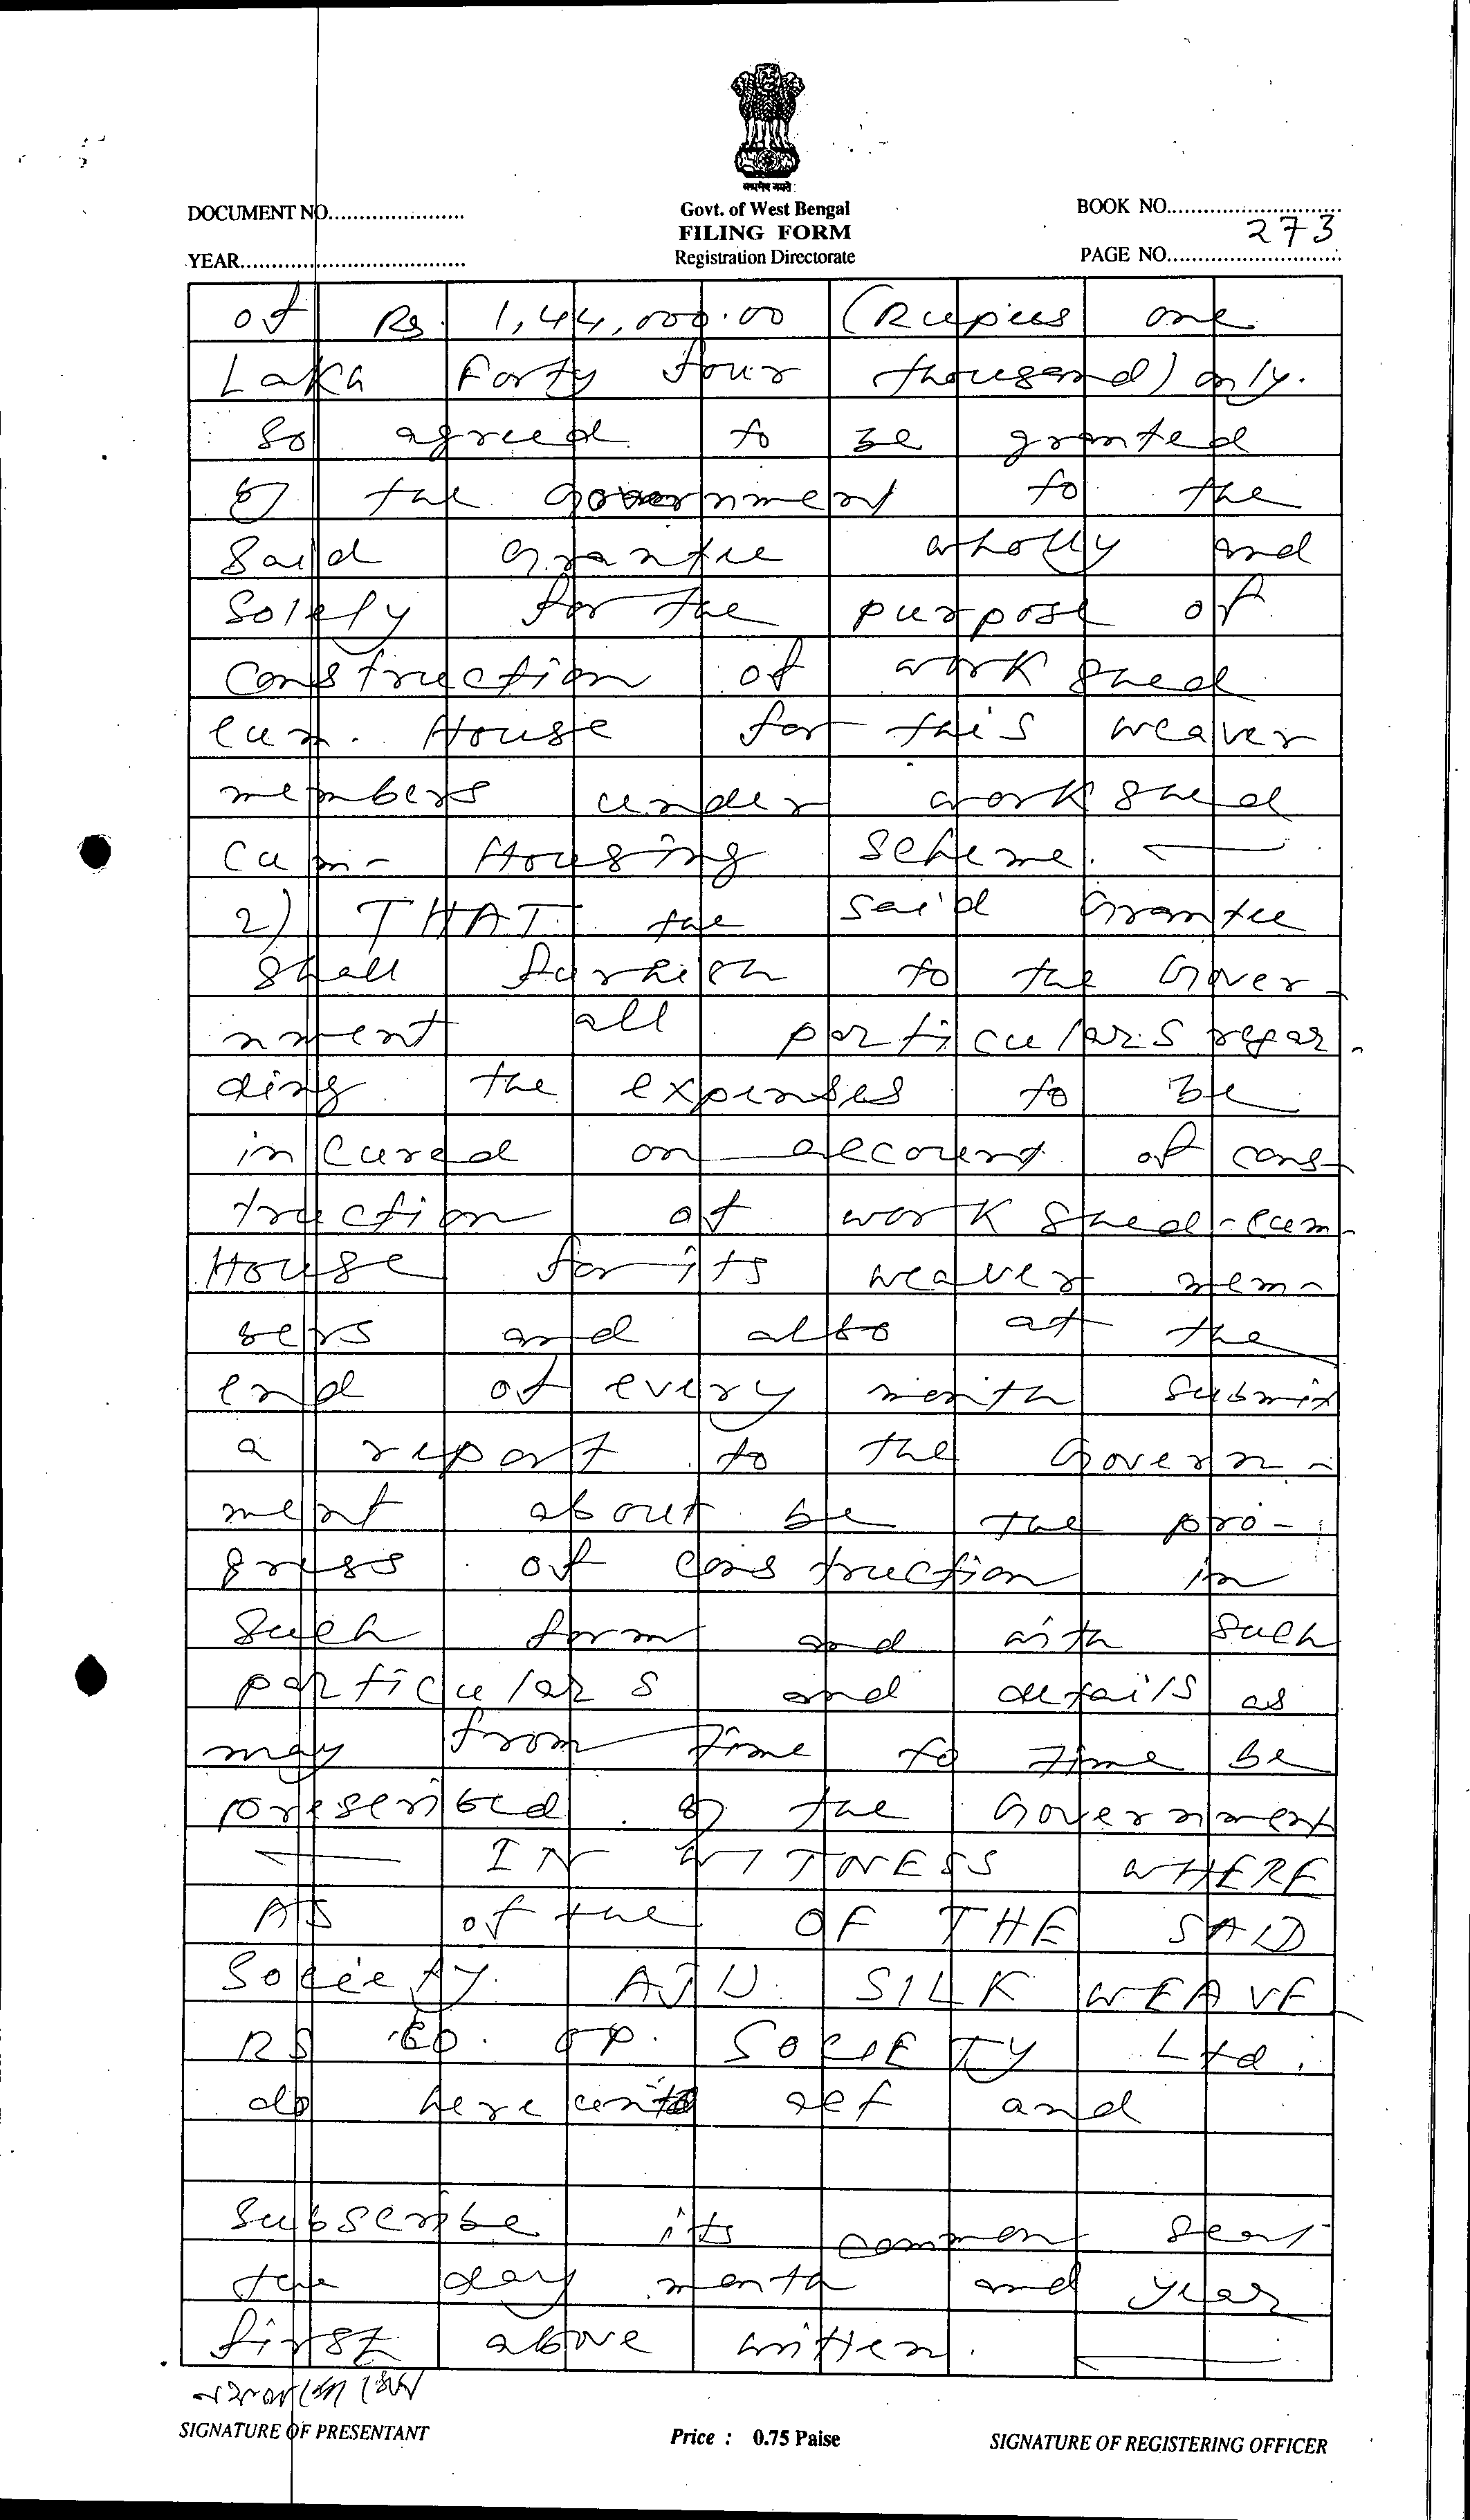 सत्यमेव जयते
DOCUMENT NO......................
Govt. of West Bengal
BOOK NO............................
FILING FORM
273
YEAR....................................
Registration Directorate
PAGE NO............................
of Rs. 1,44,000.00 (Rupees one
Lakh Forty four thousand) only.
So agreed to be granted
by the Government to the
said Grantee wholly and
Solely for the purpose of
Construction of work shed
cum. House for this weaver
members under work shed
Cum- Housing Scheme.
2) THAT the said Grantee
shall furnish to the Gover-
nment all particulars regar-
ding the expenses to be
incured on account of cons-
truction of work shed-cum-
House for its weaver mem-
bers and also at the
end of every month submit
a report to the Govern-
ment about be the pro-
gress of construction in
such form and with such
particulars and details as
may from time to time be
prescribed by the Government
IN WITNESS WHERE
AS of the OF THE SAID
Society. AJU. SILK WEAVE-
RS CO. OP. SOCIETY Ltd.
do hereunto set and
Subscribe its common seal
the day month and year
first above written.
SIGNATURE OF PRESENTANT
Price : 0.75 Paise
SIGNATURE OF REGISTERING OFFICER